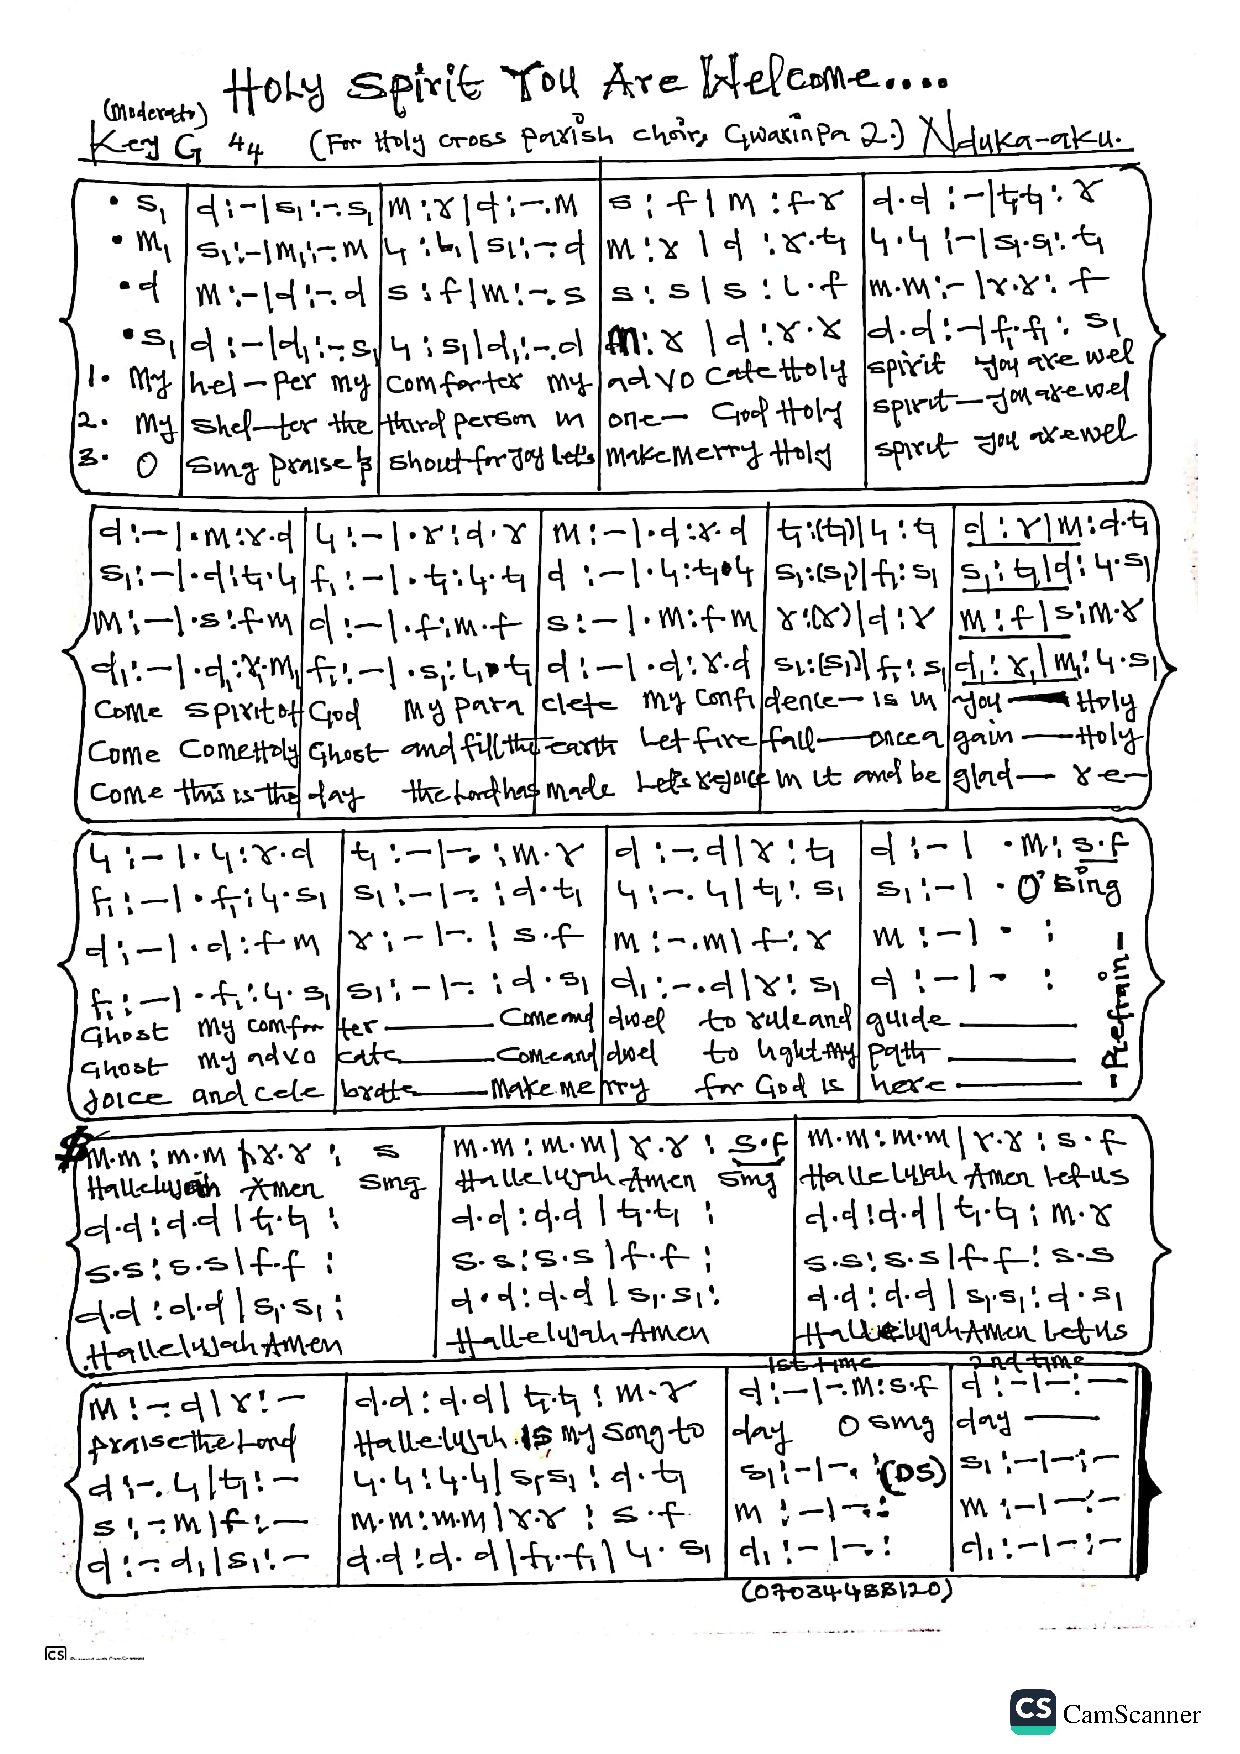 Holy Spirit You Are Welcome....
(Moderato)
Key G 4/4 (For Holy cross parish choir, Gwarinpa 2.) Nduka-aku.
. s₁ | d :- | s₁ :-. s₁ | m : r | d :-. m | s : f | m : f-r | d.d :- | t₁.t₁ : r
. m₁ | s₁ :- | m₁ :-. m | l₁ : l₁ | s₁ :-. d | m : r | d : r.t₁ | l₁.l₁ :- | s₁.s₁ : t₁
. d | m :- | d :-. d | s : f | m :-. s | s : s | s : l.f | m.m :- | r.r : f
. s₁ | d :- | d₁ :-. s₁ | l₁ : s₁ | d₁ :-. d | m : r | d : r.r | d.d :- | f₁.f₁ : s₁
1. My hel-per my comforter my advo cate Holy spirit you are wel
2. My shel-ter the third person in one- God Holy spirit- you are wel
3. O sing praise & shout for joy let's make merry Holy spirit you are wel
d :- | . m : r.d | l₁ :- | . r : d.r | m :- | . d : r.d | t₁ : (t₁) | l₁ : t₁ | d : r | m : d.t₁
s₁ :- | . d : t₁.l₁ | f₁ :- | . t₁ : l₁.t₁ | d :- | . l₁ : t₁.l₁ | s₁ : (s₁) | f₁ : s₁ | s₁ : t₁ | d : l₁.s₁
m :- | . s : f.m | d :- | . f : m.f | s :- | . m : f.m | r : (r) | d : r | m : f | s : m.r
d₁ :- | . d₁ : r₁.m₁ | f₁ :- | . s₁ : l₁.t₁ | d :- | . d : r.d | s₁ : (s₁) | f₁ : s₁ | d₁ : r₁ | m₁ : l₁.s₁
Come spirit of God my para clete my confi dence- is in you- Holy
Come Come Holy Ghost and fill the earth Let fire fall- once a gain- Holy
Come this is the day the Lord has made Let's rejoice in it and be glad- re-
l₁ :- | . l₁ : r.d | t₁ :- | -. : m.r | d :-. d | r : t₁ | d :- | . m : s.f
f₁ :- | . f₁ : l₁.s₁ | s₁ :- | -. : d.t₁ | l₁ :-. l₁ | t₁ : s₁ | s₁ :- | . O' sing
d :- | . d : f m | r :- | -. : s.f | m :-. m | f : r | m :- | . :
f₁ :- | . f₁ : l₁.s₁ | s₁ :- | -. : d.s₁ | d₁ :-. d | r : s₁ | d :- | . :
-Prefrain-
Ghost my comfor ter- Come and dwel to rule and guide
Ghost my advo cate- Come and dwel to light my path
Joice and cele brate- make me rry for God is here
m.m : m.m | r.r : s | m.m : m.m | r.r : s.f | m.m : m.m | r.r : s.f
Hallelujah Amen sing Hallelujah Amen sing Hallelujah Amen let us
d.d : d.d | t₁.t₁ : | d.d : d.d | t₁.t₁ : | d.d : d.d | t₁.t₁ : m.r
s.s : s.s | f.f : | s.s : s.s | f.f : | s.s : s.s | f.f : s.s
d.d : d.d | s₁.s₁ : | d.d : d.d | s₁.s₁ : | d.d : d.d | s₁.s₁ : d.s₁
Hallelujah Amen Hallelujah Amen Hallelujah Amen Let us
1st time 2nd time
m :-. d | r :- | d.d : d.d | t₁.t₁ : m.r | d :- | -. m : s.f | d :- | - : -
praise the Lord Hallelujah is my song to day O sing day
d :-. l₁ | t₁ :- | l₁.l₁ : l₁.l₁ | s₁.s₁ : d.t₁ | s₁ :- | -. : (DS) | s₁ :- | - : -
s :-. m | f :- | m.m : m.m | r.r : s.f | m :- | -. : | m :- | - : -
d :-. d₁ | s₁ :- | d.d : d.d | f₁.f₁ | l₁.s₁ | d₁ :- | -. : | d₁ :- | - : -
(07034488120)
CS
CS CamScanner